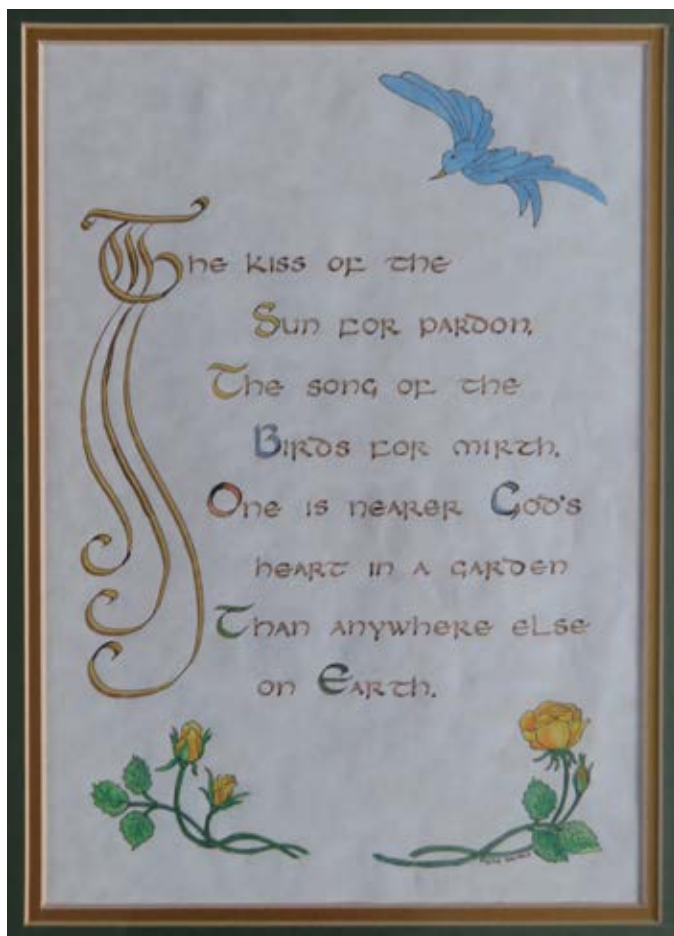 The kiss of the
Sun for pardon.
The song of the
Birds for mirth.
One is nearer God's
heart in a garden
Than anywhere else
on Earth.